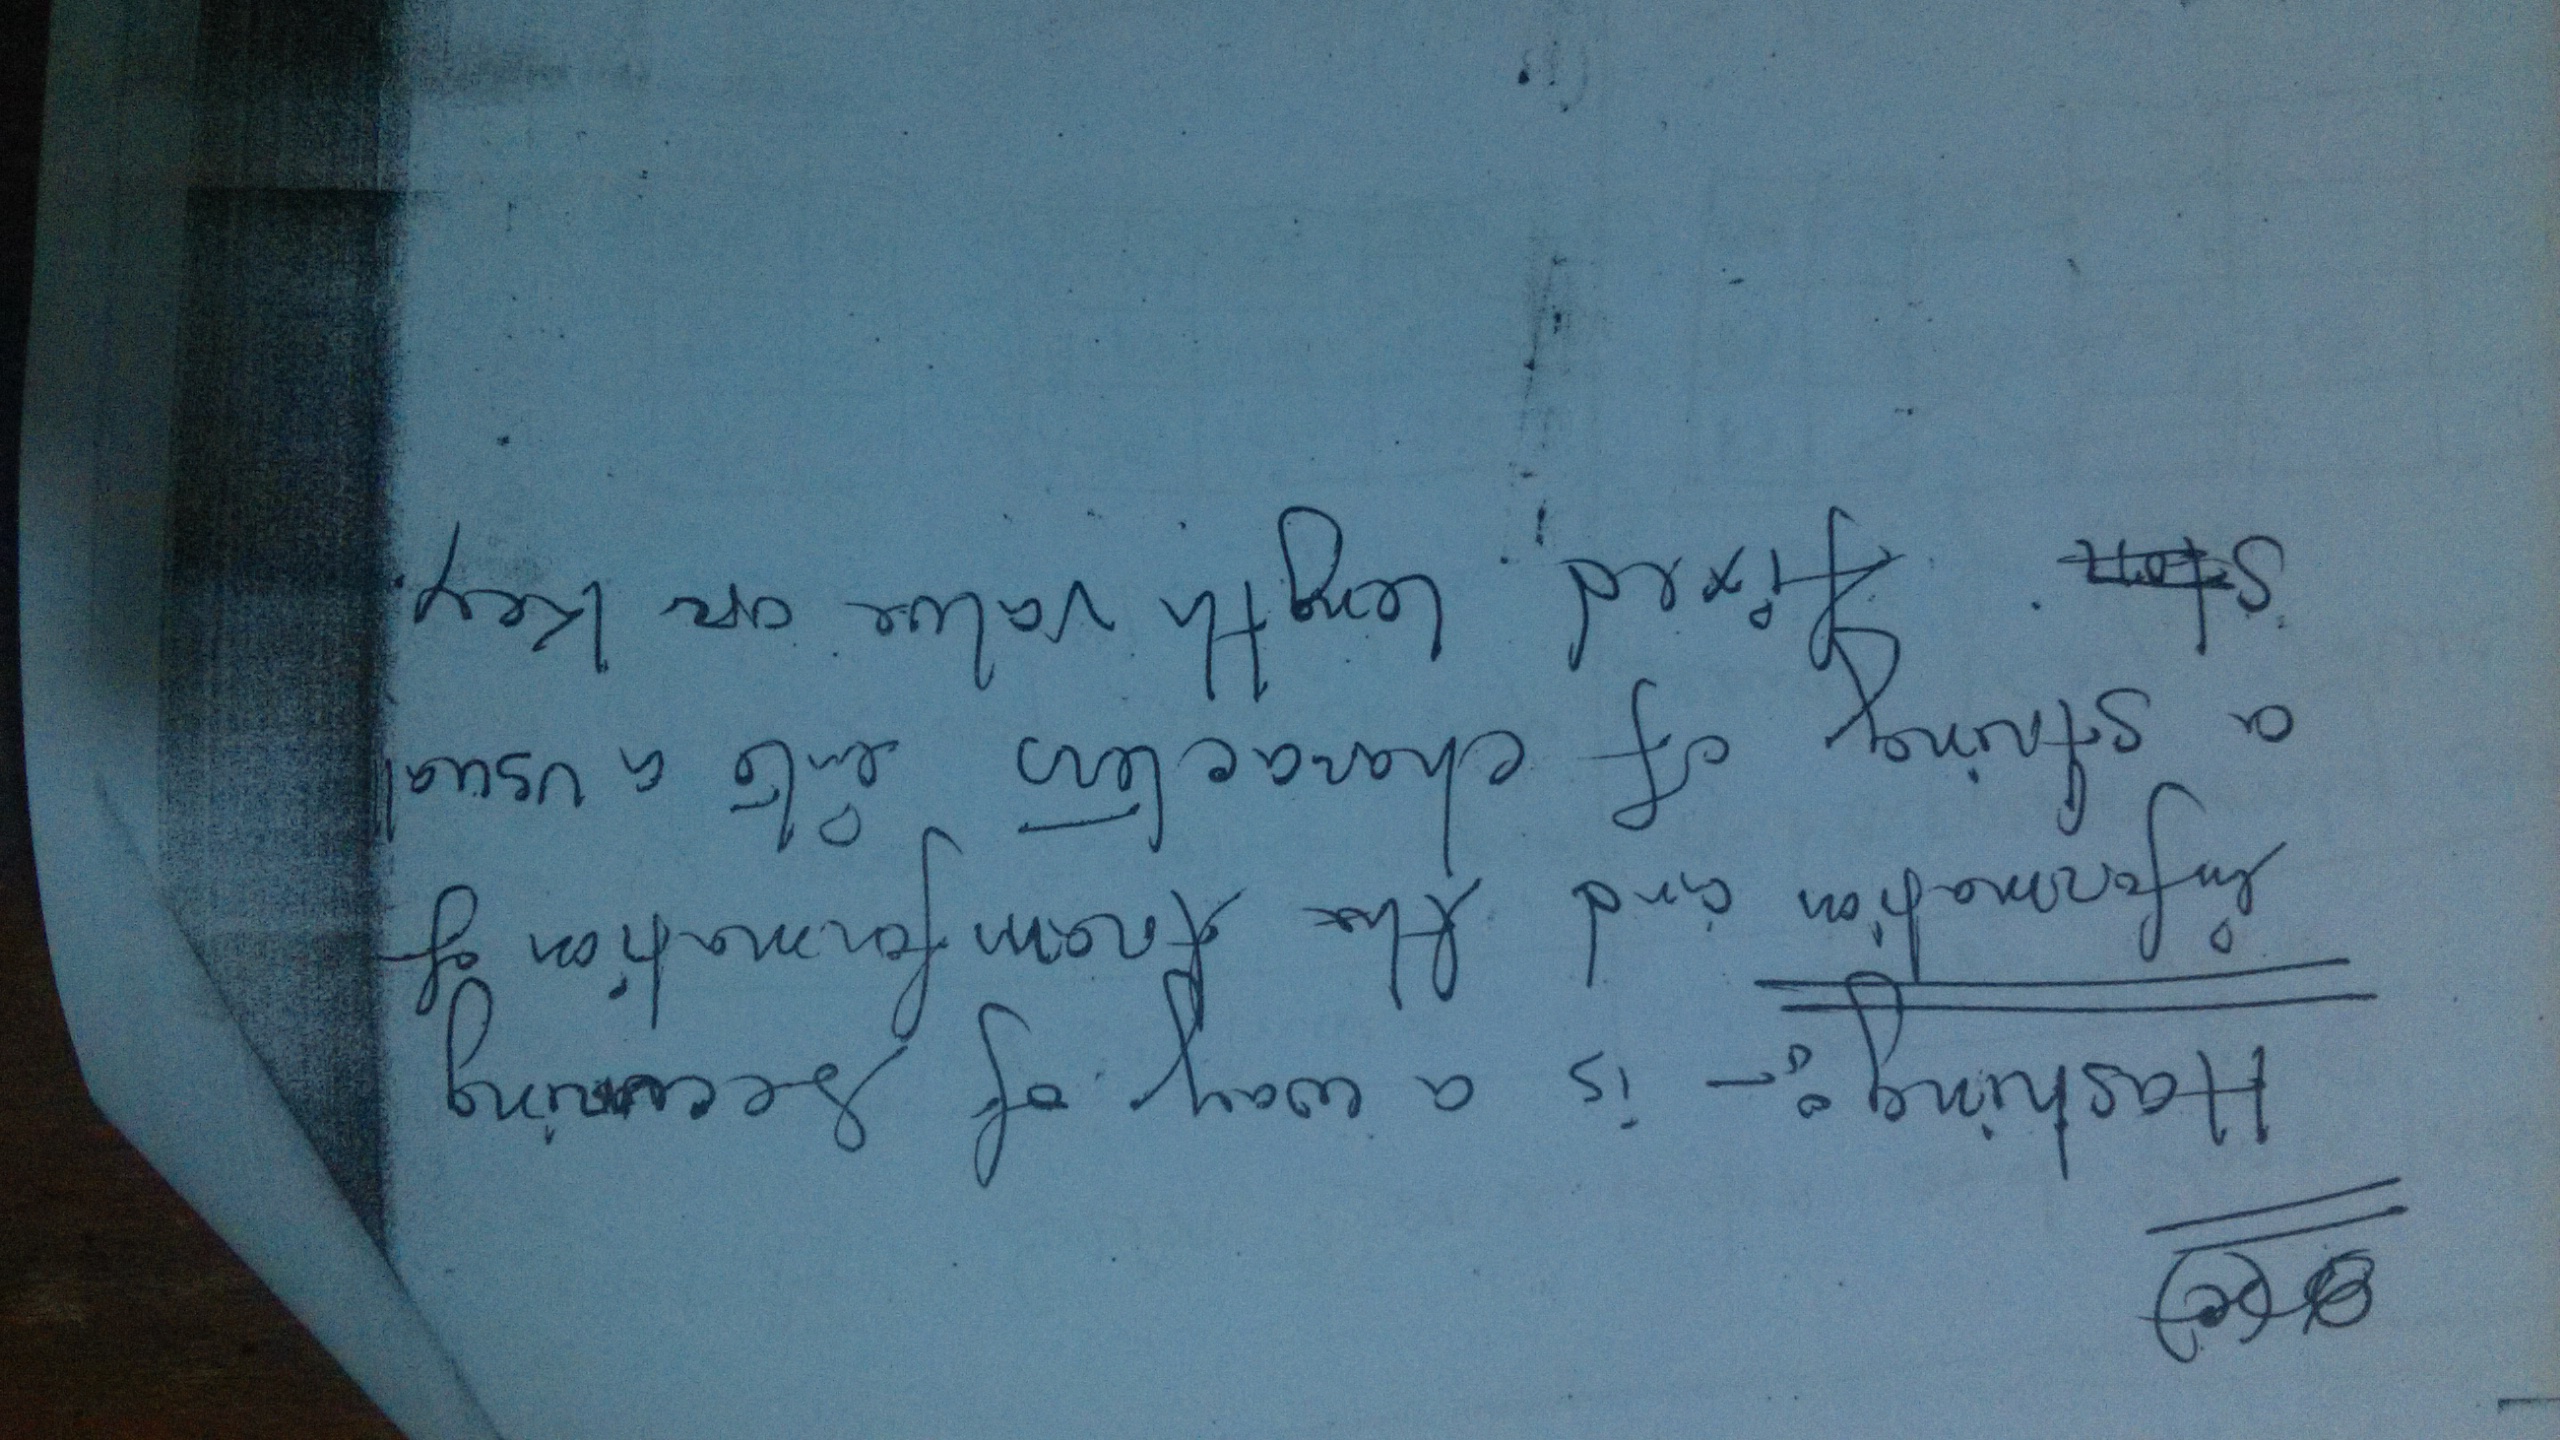 Hashing:- is a way of securing
information and the tranformation of
a string of characters into a usual
fixed length value are key.